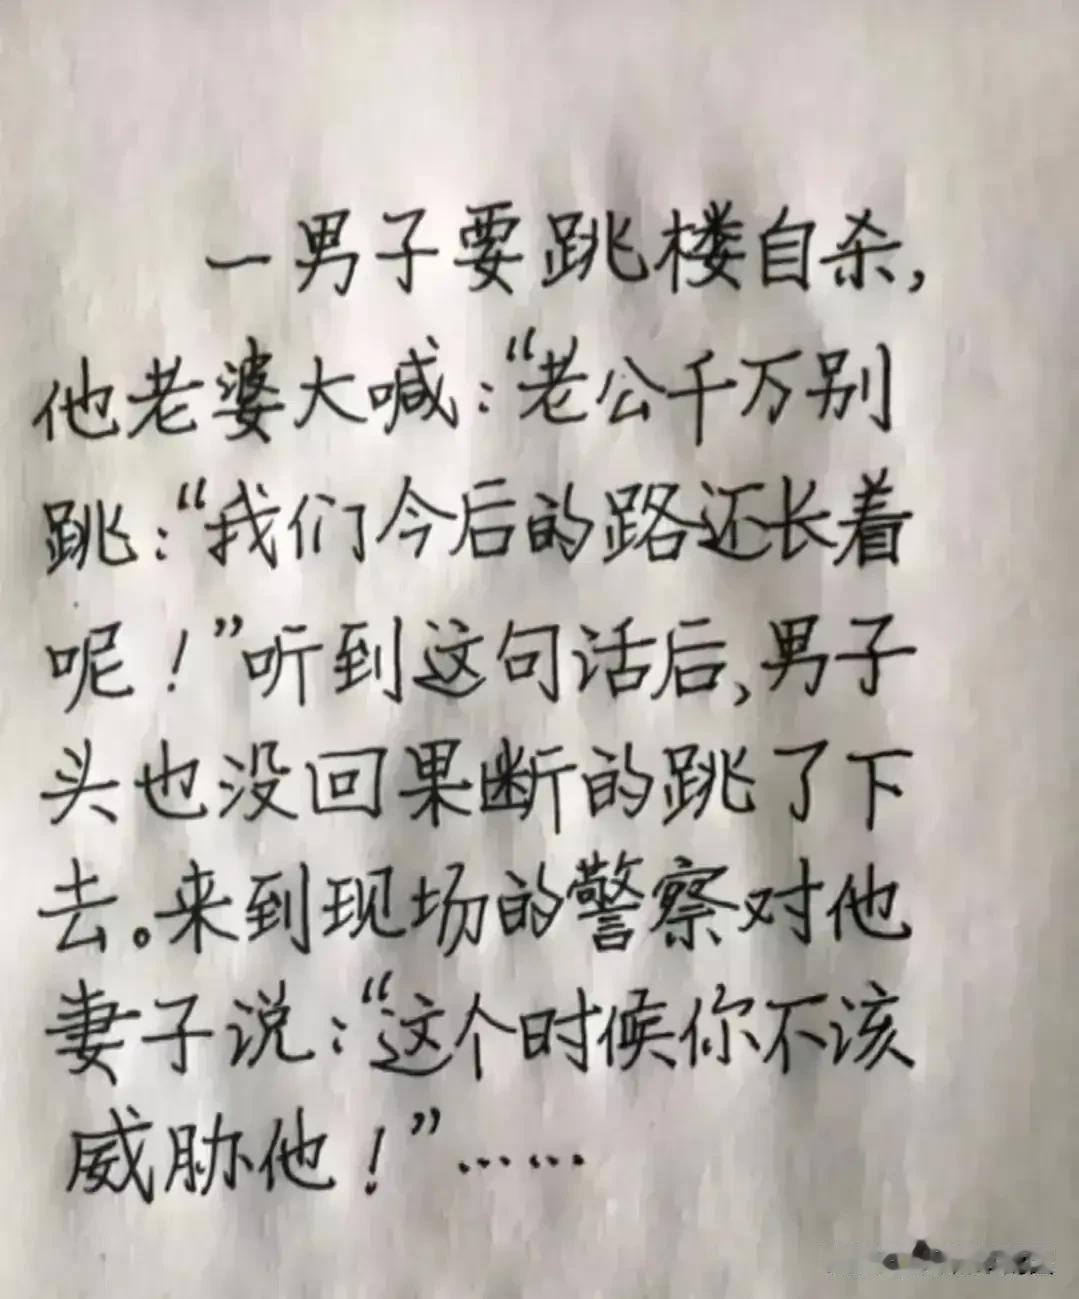 一男子要跳楼自杀,
他老婆大喊:“老公千万别
跳:“我们今后的路还长着
呢!”听到这句话后,男子
头也没回果断的跳了下
去。来到现场的警察对他
妻子说:“这个时候你不该
威胁他!”……